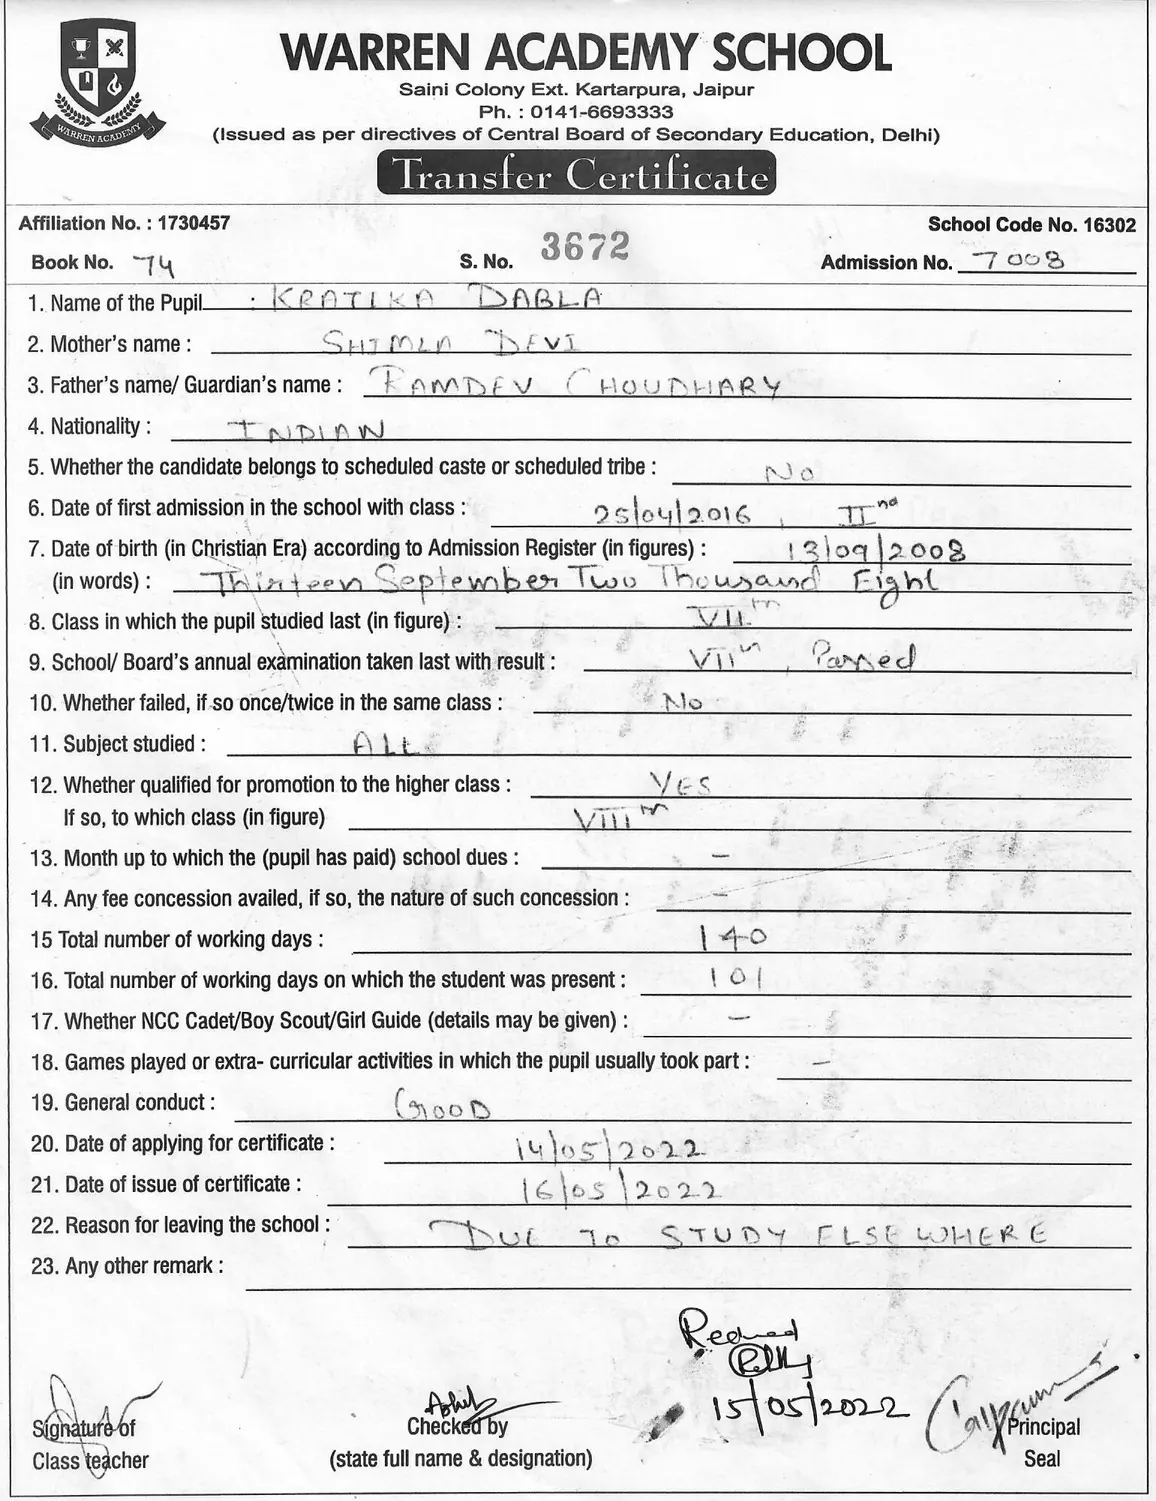 WARREN ACADEMY
WARREN ACADEMY SCHOOL
Saini Colony Ext. Kartarpura, Jaipur
Ph. : 0141-6693333
(Issued as per directives of Central Board of Secondary Education, Delhi)
Transfer Certificate
Affiliation No. : 1730457 School Code No. 16302
Book No. 74 S. No. 3672 Admission No. 7008
1. Name of the Pupil : KRATIKA DABLA
2. Mother's name : SHIMLA DEVI
3. Father's name/ Guardian's name : RAMDEV CHOUDHARY
4. Nationality : INDIAN
5. Whether the candidate belongs to scheduled caste or scheduled tribe : No
6. Date of first admission in the school with class : 25/04/2016, IInd
7. Date of birth (in Christian Era) according to Admission Register (in figures) : 13/09/2008
(in words) : Thirteen September Two Thousand Eight
8. Class in which the pupil studied last (in figure) : VIIth
9. School/ Board's annual examination taken last with result : VIIth, Passed
10. Whether failed, if so once/twice in the same class : No
11. Subject studied : ALL
12. Whether qualified for promotion to the higher class : YES
If so, to which class (in figure) VIIIth
13. Month up to which the (pupil has paid) school dues : -
14. Any fee concession availed, if so, the nature of such concession : -
15 Total number of working days : 140
16. Total number of working days on which the student was present : 101
17. Whether NCC Cadet/Boy Scout/Girl Guide (details may be given) : -
18. Games played or extra- curricular activities in which the pupil usually took part : -
19. General conduct : GOOD
20. Date of applying for certificate : 14/05/2022
21. Date of issue of certificate : 16/05/2022
22. Reason for leaving the school : DUE TO STUDY ELSEWHERE
23. Any other remark :
15/05/2022
Signature of Checked by Principal
Class teacher (state full name & designation) Seal